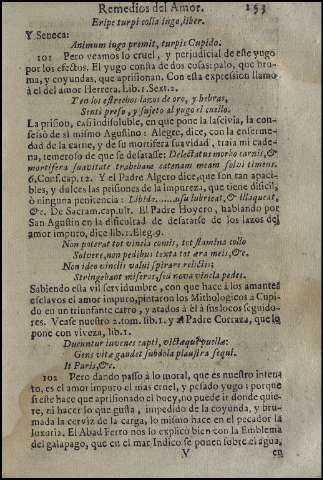 Remedios del Amor. 153
Eripe turpi colla iugo, liber.
Y Seneca:
Animum iugo premit, turpis Cupido.
101 Pero veamos lo cruel, y perjudicial de este yugo
por los efectos. El yugo consta de dos cosas: palo, que bru-
ma, y coyundas, que aprisionan. Con esta expression llamò
à el del amor Herrera. Lib.1. Sext.2.
Y en los estrechos lazos de oro, y hebras,
Sentì preso, y sujeto al yugo el cuello.
La prision, casi indisoluble, en que pone la lascivia, la con-
fesò de si mismo Agustino: Alegre, dice, con la enferme-
dad de la carne, y de su mortifera suavidad, traia mi cade-
na, temeroso de que se desatasse: Delectatus morbo carnis, &
mortifera suavitate trahebam catenam meam solvi timens.
6. Conf. cap. 12. Y el Padre Algero dice, que son tan apaci-
bles, y dulces las prisiones de la impureza, que tiene dificil,
ò ninguna penitencia: Libido......usu lubricat, & illaqueat,
&c. De Sacram. cap. ult. El Padre Hoyero, hablando por
San Agustin en la dificultad de desatarse de los lazos del
amor impuro, dice lib.1. Eleg. 9.
Non poterat tot vincla comis, tot flamina collo
Solvere, non pedibus texta tot æra meis, &c.
Non ideo vinclis valui spirare relictis;
Stringebant miseros, seà nova vincla pedes.
Sabiendo esta vil servidumbre, con que hace à los amantes
esclavos el amor impuro, pintaron los Mithologicos a Cupi-
do en un triunfante carro, y atados à èl à sus locos seguido-
res. Vease nuestro 2. tom. lib.1. y al Padre Corraza, que lo
pone con viveza, lib.1.
Ducuntur iuvenes capti, victæque puellæ:
Gens vitæ gaudet subdola plaustra sequi.
It Paris, &c.
102 Pero dando passo à lo moral, que es nuestro inten-
to, es el amor impuro el mas cruel, y pesado yugo; porque
si este hace que aprisionado el buey, no puede ir donde quie-
re, ni hacer lo que gusta, impedido de la coyunda, y bru-
mada la cerviz de la carga, lo mismo hace en el pecador la
luxuria. El Abad Ferro nos lo explicò bien con la Emblema
del galapago, que en el mar Indico se ponen sobre el agua,
V en